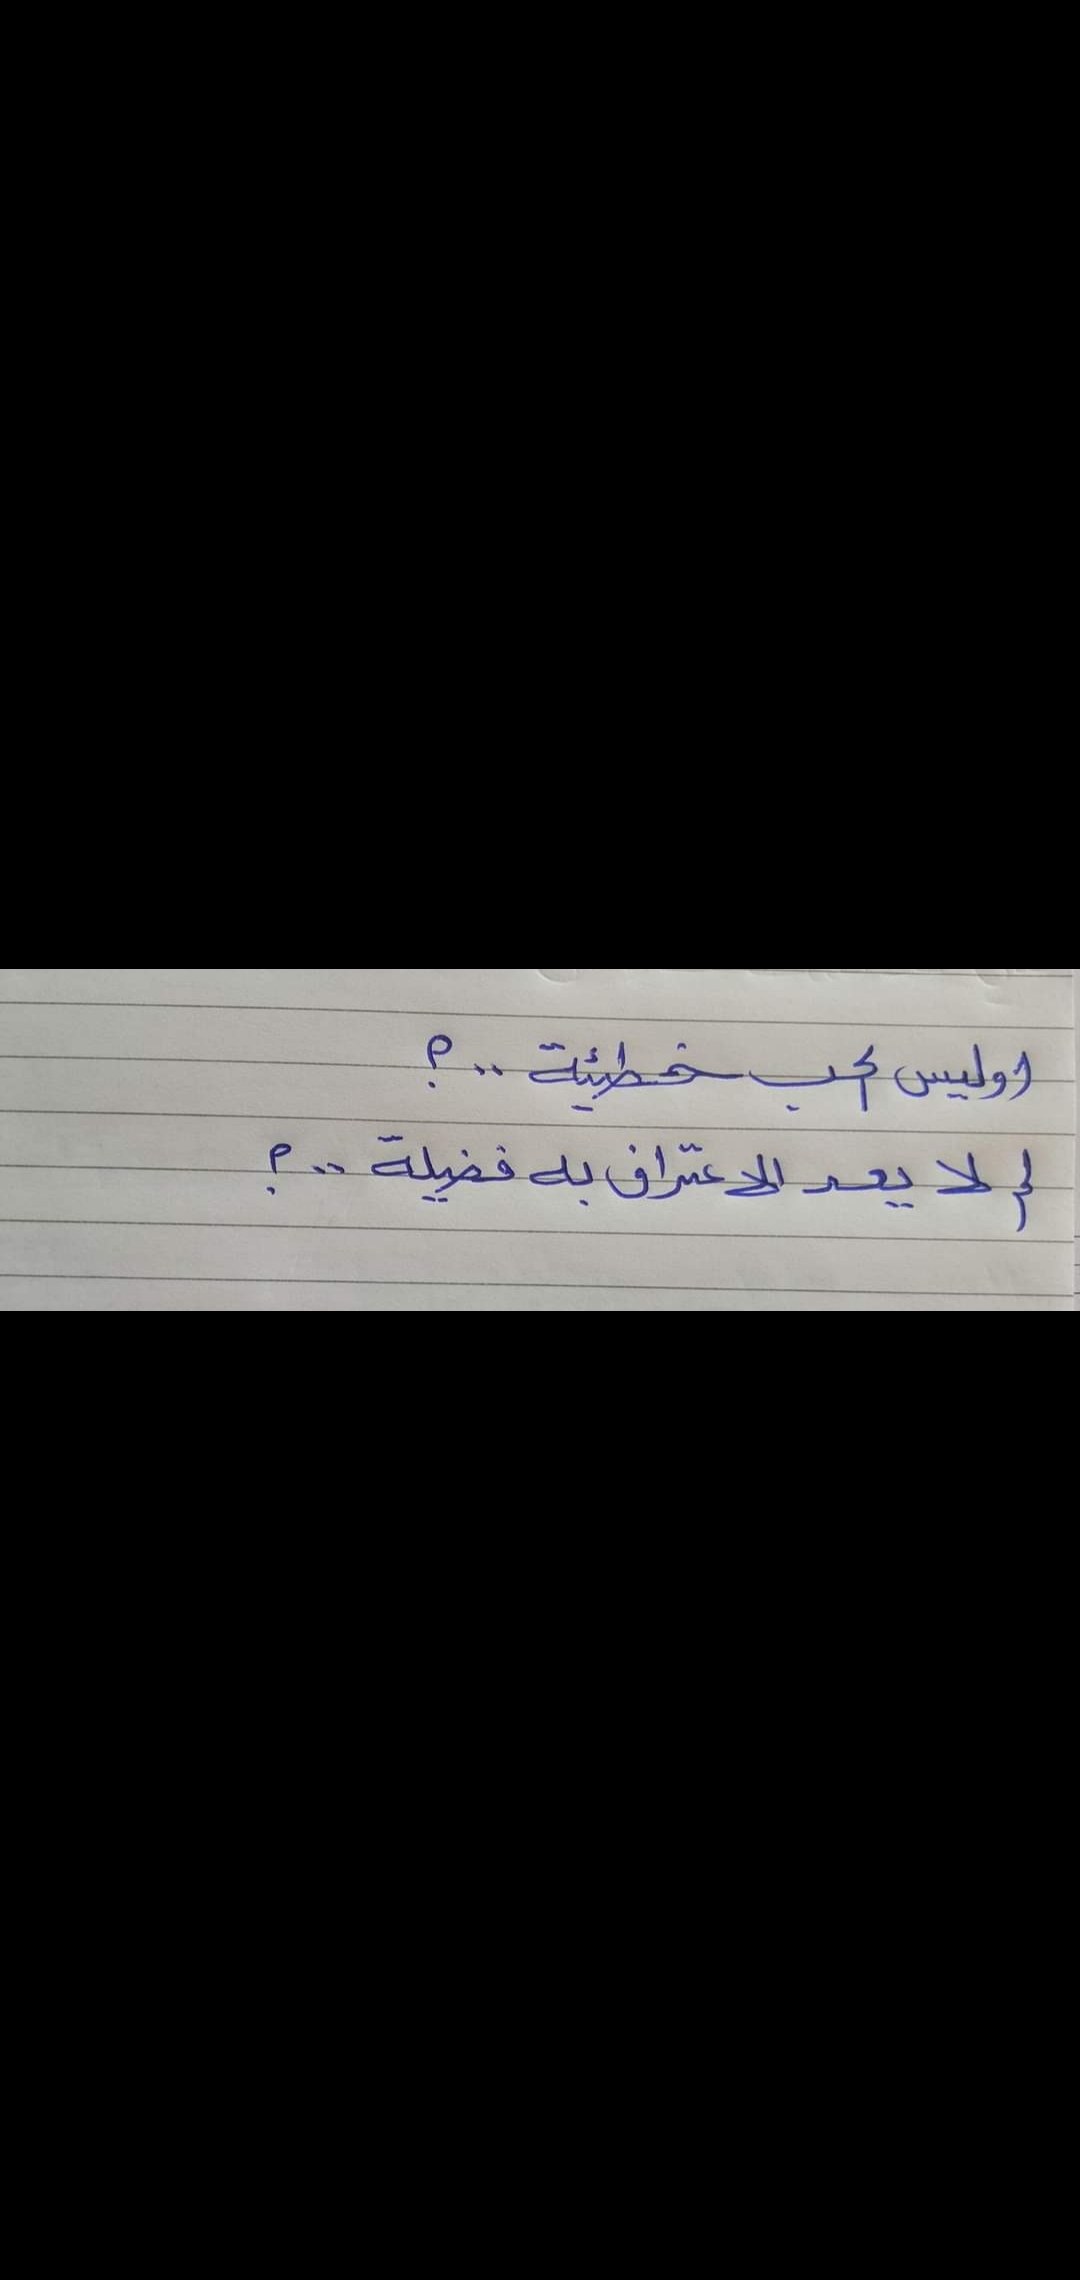 اوليس الحب خطيئة .. ؟
لم لا يعد الاعتراف به فضيلة .. ؟